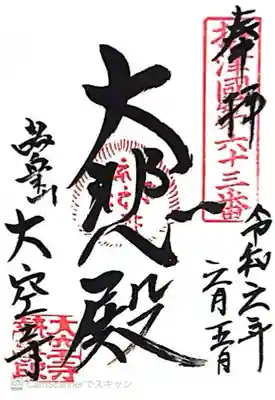 奉拝
摂津國第六十三番
大悲殿
令和六年
六月五日
大空寺
CamScannerでスキャン